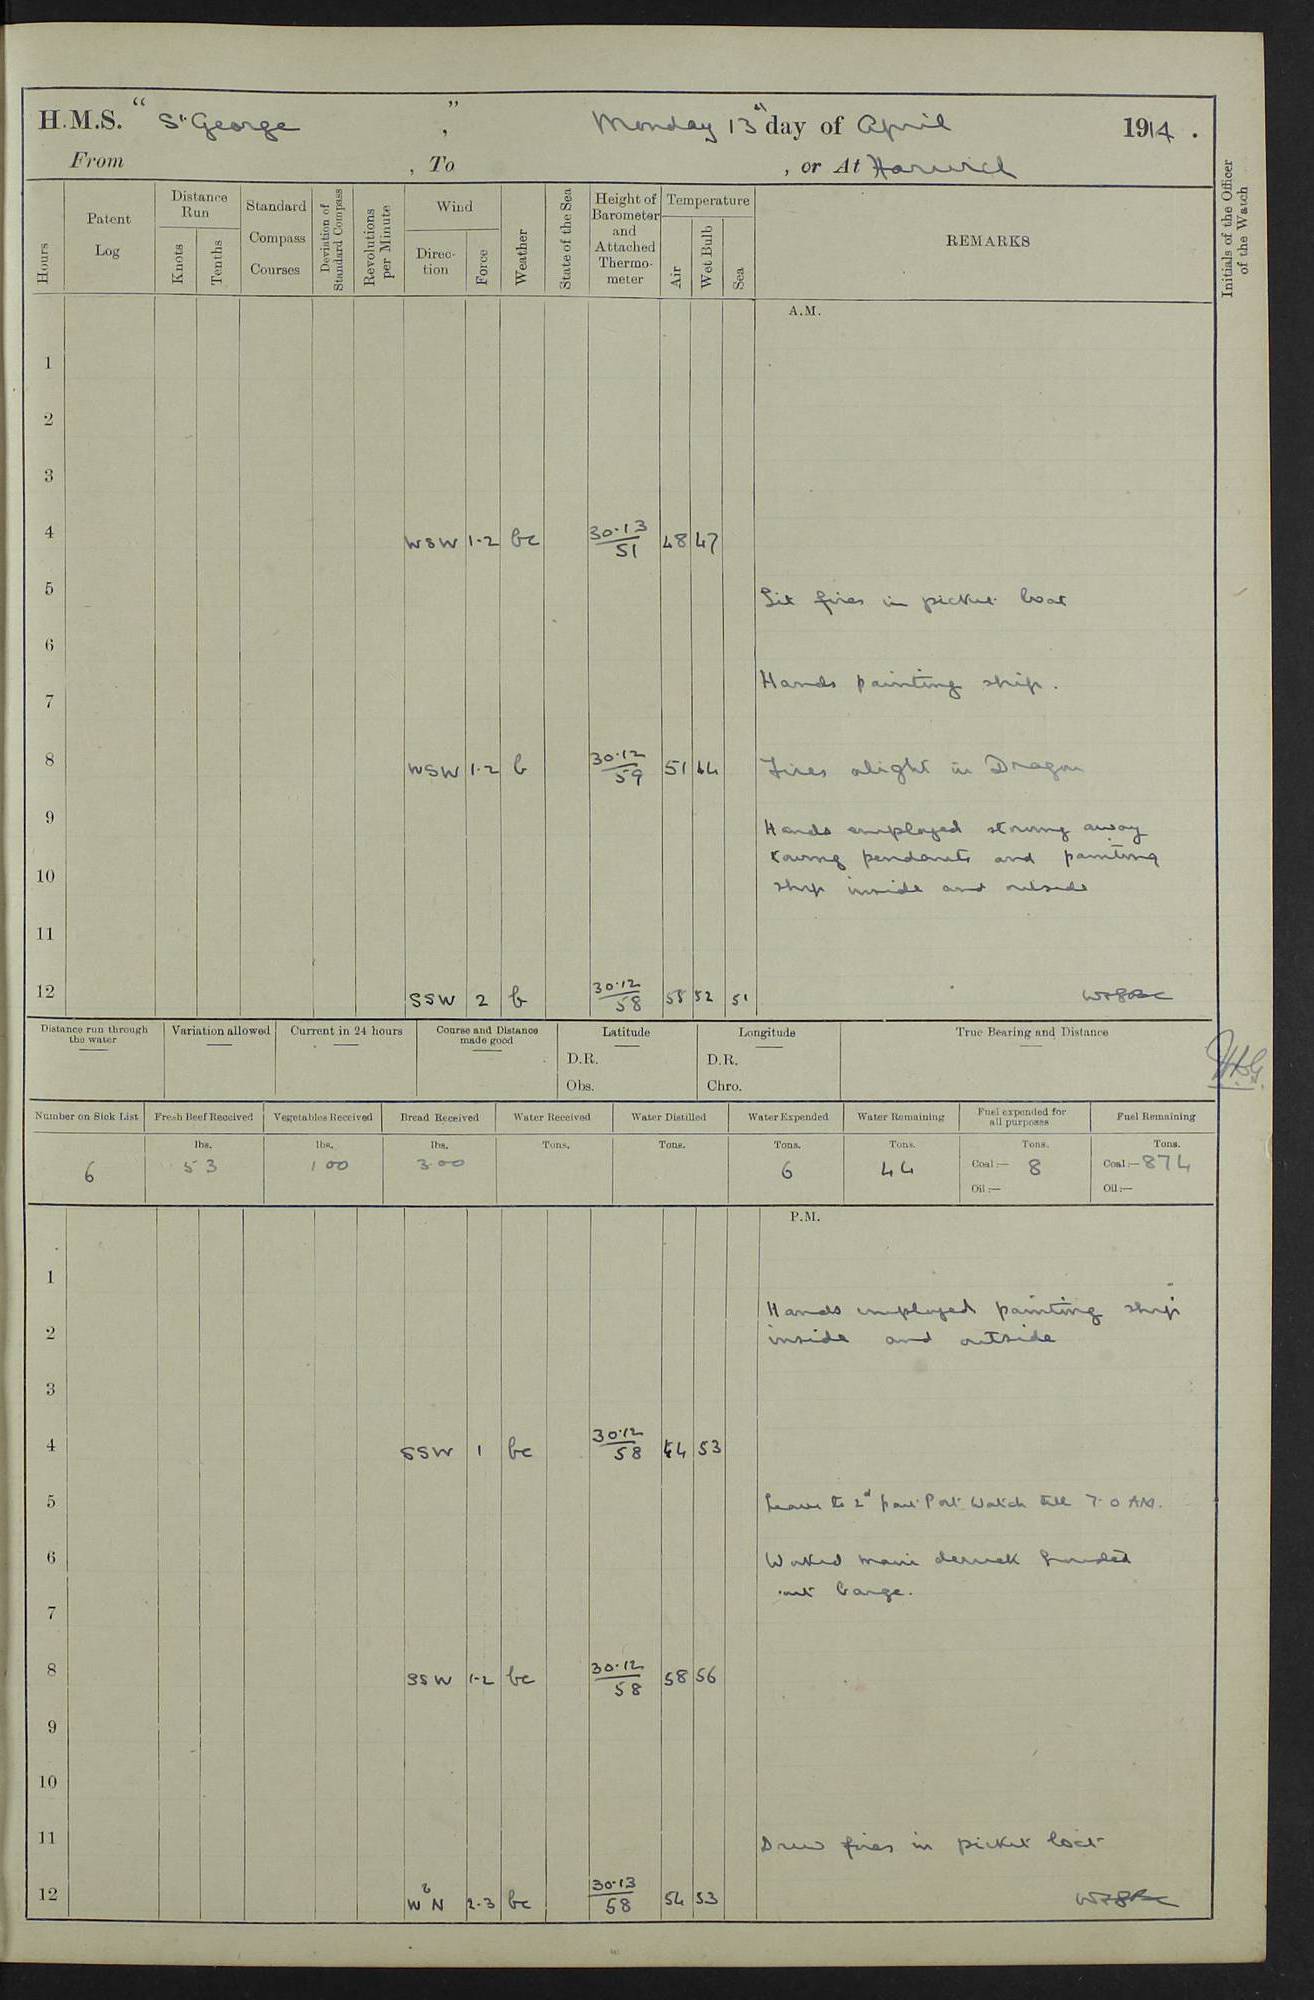 H.M.S. “ St George ”, Monday 13th day of April 1914.
From , To , or At Harwich
Hours
Patent Log
Distance Run
Knots
Tenths
Standard Compass Courses
Deviation of Standard Compass
Revolutions per Minute
Wind
Direction
Force
Weather
State of the Sea
Height of Barometer and Attached Thermometer
Temperature
Air
Wet Bulb
Sea
REMARKS
Initials of the Officer of the Watch
A.M.
1
2
3
4 WSW 1-2 bc 30·13/51 48 47
5 Lit fires in picket boat
6
Hands painting ship.
7
8 WSW 1-2 b 30·12/59 51 44 Fires alight in Dragon
9 Hands employed stowing away
towing pendants and painting
10 ship inside and outside
11
12 SSW 2 b 30·12/58 58 52 51
Distance run through the water
Variation allowed
Current in 24 hours
Course and Distance made good
Latitude
D.R.
Obs.
Longitude
D.R.
Chro.
True Bearing and Distance
Number on Sick List
6
Fresh Beef Received
lbs.
53
Vegetables Received
lbs.
100
Bread Received
lbs.
300
Water Received
Tons.
Water Distilled
Tons.
Water Expended
Tons.
6
Water Remaining
Tons.
44
Fuel expended for all purposes
Tons.
Coal:— 8
Oil:—
Fuel Remaining
Tons.
Coal:— 874
Oil:—
P.M.
1
Hands employed painting ship
2 inside and outside
3
4 SSW 1 bc 30·12/58 54 53
5 Leave to 2d part Port Watch till 7·0 AM.
6 Worked main derrick hoisted
out barge.
7
8 SSW 1-2 bc 30·12/58 58 56
9
10
11 Drew fires in picket boat
12 W b N 2-3 bc 30·13/58 54 53